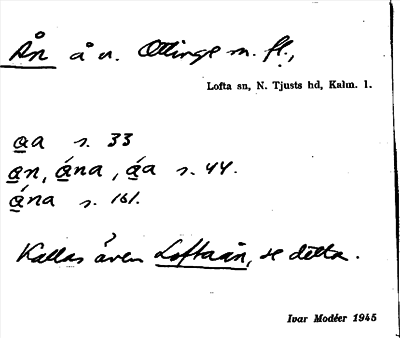 Ån å v. Ottinge m. fl.,
Lofta sn, N. Tjusts hd, Kalm. l.
a̲a s. 33
a̲n, á̲na, á̲a s. 44.
á̲na s. 161.
Kallas även Loftaån, se detta.
Ivar Modéer 1945